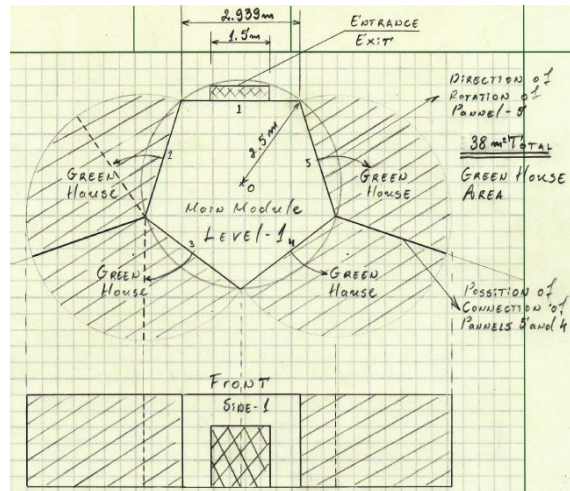 2.939m
1.5m
ENTRANCE
EXIT
DIRECTION of
ROTATION of
PANNEL-5
38 m² TOTAL
GREEN HOUSE
AREA
1
2.5m
2
5
GREEN
House
GREEN
House
O
MAIN MODULE
LEVEL-1
3
4
GREEN
House
GREEN
House
POSSITION of
CONNECTION of
PANNELS 5 and 4
FRONT
SIDE-1